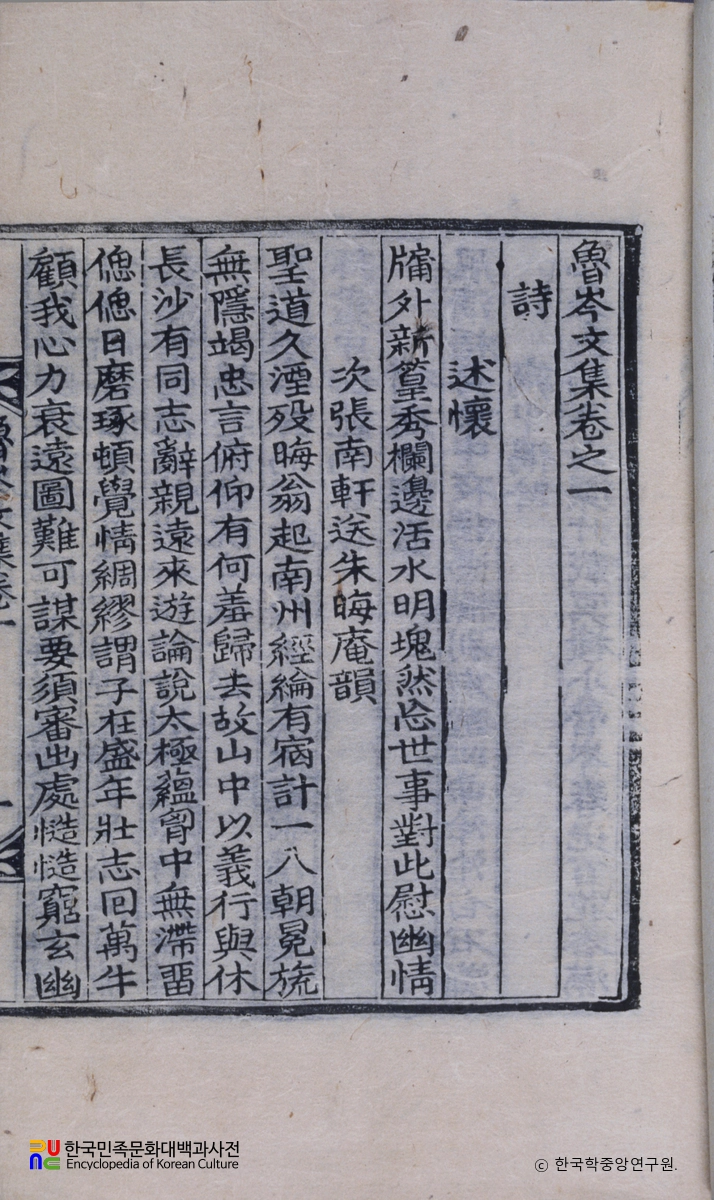 魯岑文集卷之一
詩
述懷
牗外新篁秀欄邊活水明塊然忘世事對此慰幽情
次張南軒送朱晦庵韻
聖道久湮歿晦翁起南州經綸有宿計一八朝冕旒
無隱竭忠言俯仰有何羞歸去故山中以義行與休
長沙有同志辭親遠來遊論說太極蘊胷中無滯畱
偲偲日磨琢頓覺情綢繆謂子在盛年壯志回萬牛
顧我心力衰遠圖難可謀要須審出處慥慥窮玄幽
魯岑文集卷一
한국민족문화대백과사전
Encyclopedia of Korean Culture
© 한국학중앙연구원.